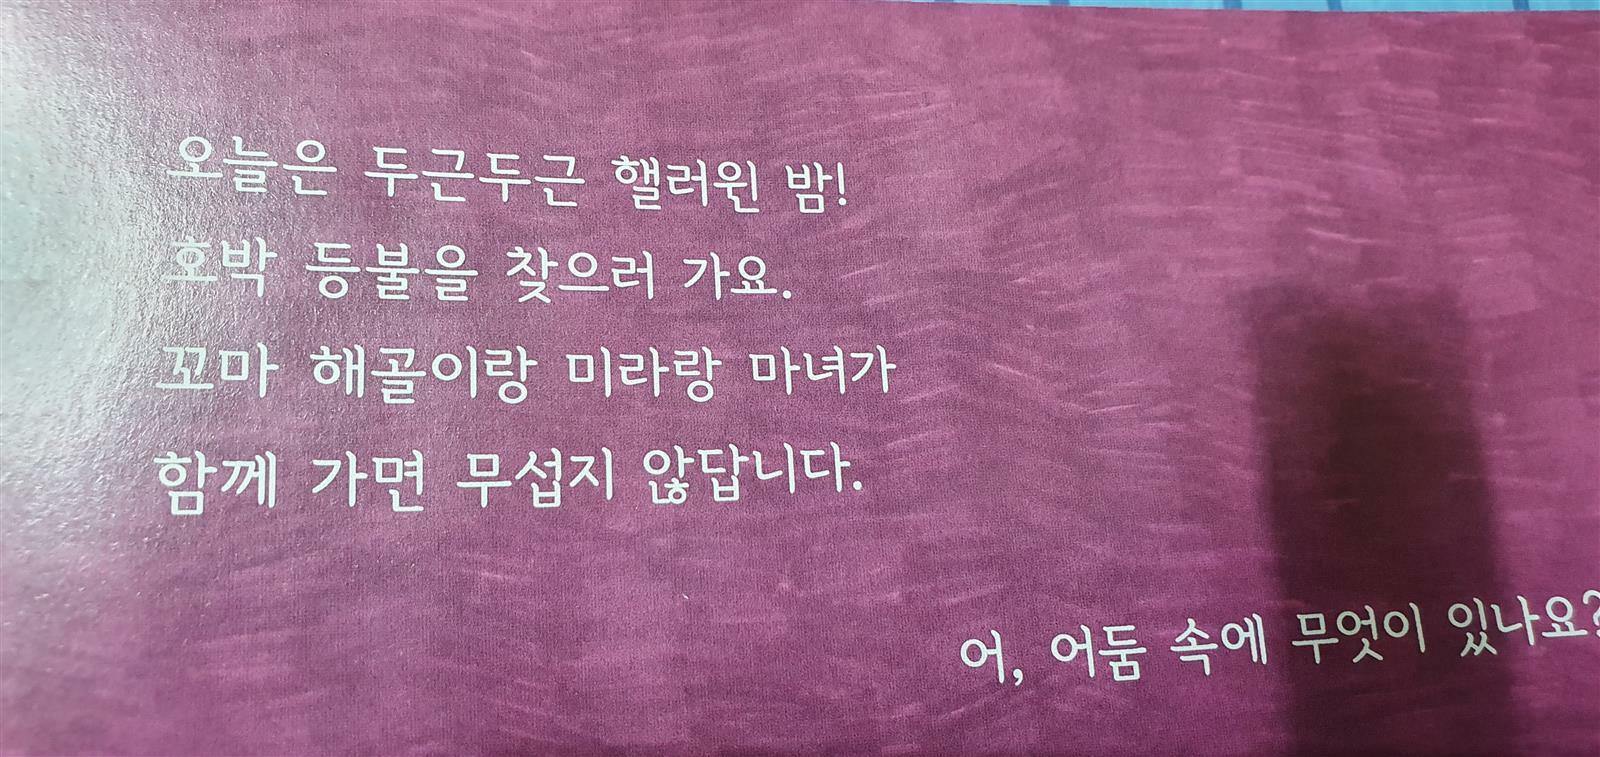 오늘은 두근두근 핼러윈 밤!
호박 등불을 찾으러 가요.
꼬마 해골이랑 미라랑 마녀가
함께 가면 무섭지 않답니다.
어, 어둠 속에 무엇이 있나요?